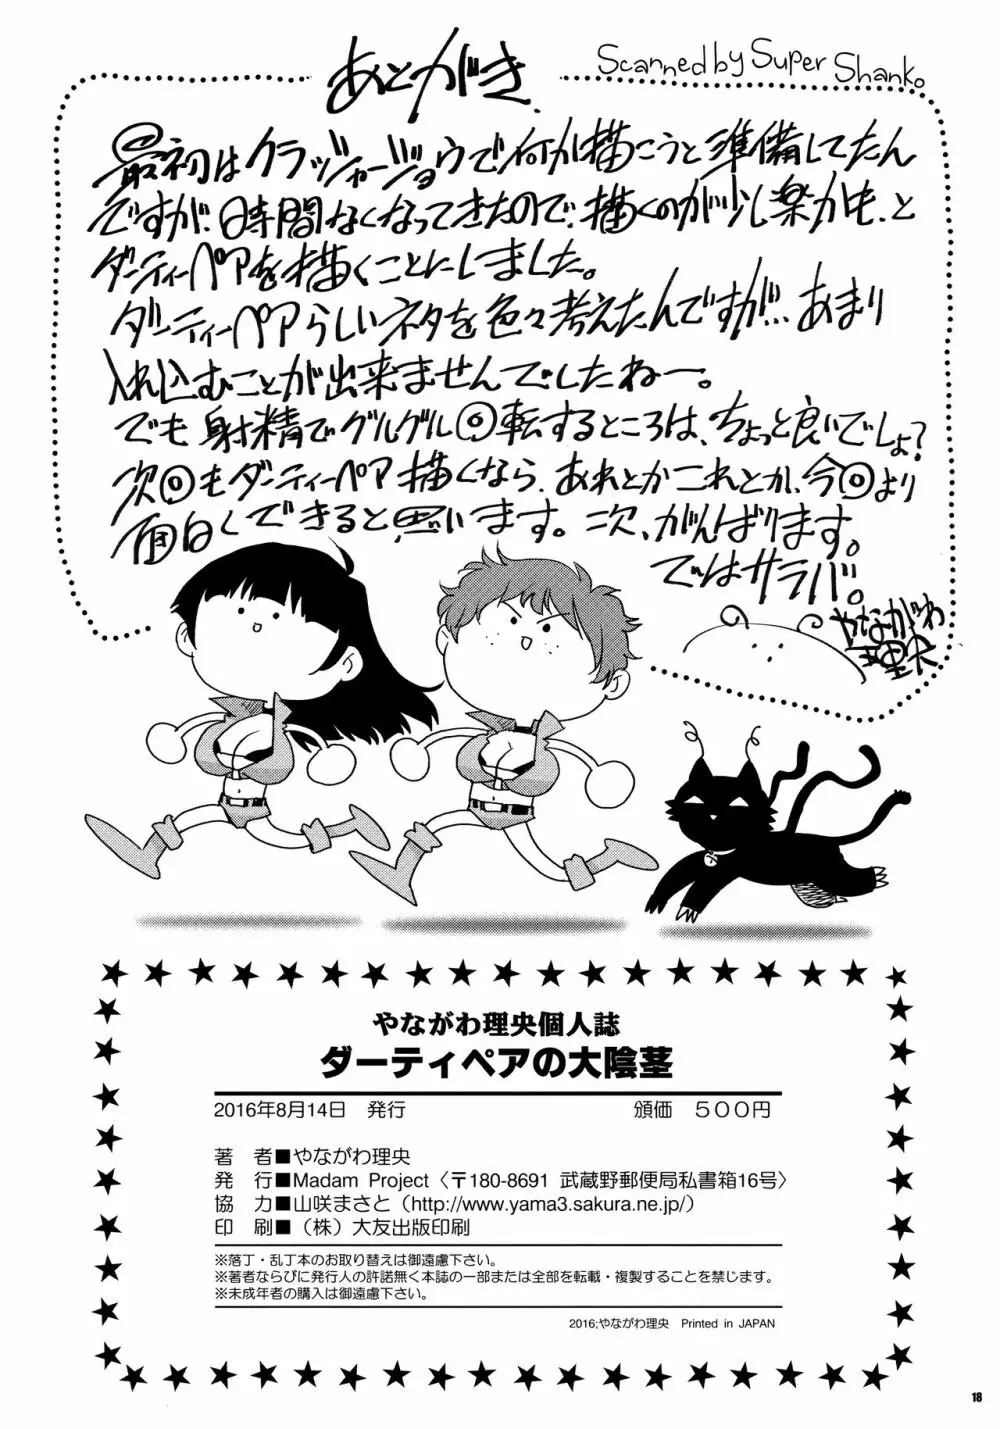 Scanned by Super Shanko
あとがき
最初はクラッシャージョウで何か描こうと準備してたん
ですが、時間なくなってきたので、描くのが少し楽かも、と
ダーティーペアを描くことにしました。
ダーティーペアらしいネタを色々考えたんですが…あまり
入れ込むことが出来ませんでしたねー。
でも射精でグルグル回転するところは、ちょっと良いでしょ?
次回もダーティーペア描くなら、あれとかこれとか、今回より
面白くできると思います。次、がんばります。
ではサラバ。
やながわ
理央
やながわ理央個人誌
ダーティペアの大陰茎
2016年8月14日 発行 頒価 500円
著 者■やながわ理央
発 行■Madam Project〈〒180-8691 武蔵野郵便局私書箱16号〉
協 力■山咲まさと（http://www.yama3.sakura.ne.jp/）
印 刷■（株）大友出版印刷
※落丁・乱丁本のお取り替えは御遠慮下さい。
※著者ならびに発行人の許諾無く本誌の一部または全部を転載・複製することを禁じます。
※未成年者の購入は御遠慮下さい。
2016;やながわ理央 Printed in JAPAN
18